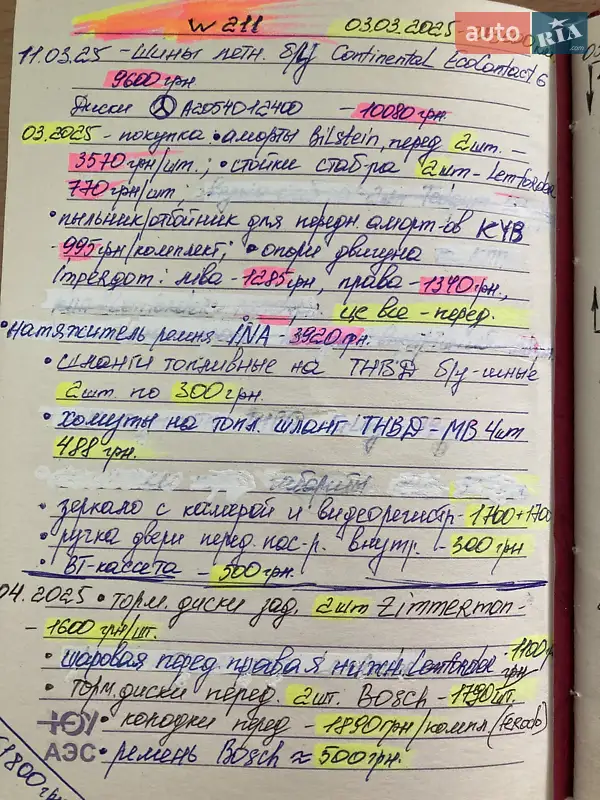 W 211
03.03.2025 -
auto RIA.com
11.03.25 - Шины летн. б/у Continental EcoContact 6
9600 грн
Диски A2054012400 - 10080 грн.
03.2025 - покупка • аморты Bilstein, перед 2шт. -
3570 грн/шт.; • стойки стаб-ра 2шт - Lemförder
770 грн/шт.
• пыльник/отбойник для передн. аморт-ов KYB
- 995 грн/комплект; • опори двигуна
Impergom: ліва - 1285 грн, права - 1340 грн.,
це все - перед.
• натяжитель ремня INA - 3920 грн.
• шланги топливные на ТНВД б/у-шные
2шт. по 300 грн.
• хомуты на топл. шланг ТНВД - MB 4шт
488 грн.
габариты
• зеркало с камерой и видеорегистр - 1700 + 1700
• ручка двери перед. пас-р. внутр. - 300 грн
• BT-кассета - 500 грн.
04.2025 • торм. диски зад. 2шт Zimmerman -
- 1600 грн/шт.
• шаровая перед правая нижн. Lemförder - 1100 грн
• торм. диски перед. 2шт. BOSCH - 1790 шт.
• колодки перед 1890 грн/компл (ferodo)
• ремень Bosch ≈ 500 грн.
ЮУ
АЭС
1800 грн